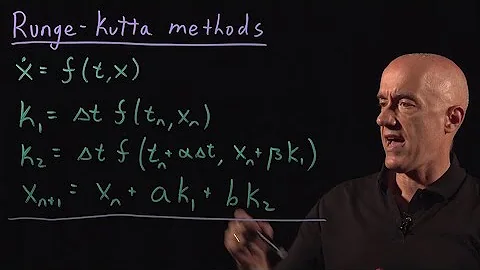 Runge-Kutta methods
ẋ = f(t,x)
K₁ = Δt f(tₙ, xₙ)
K₂ = Δt f(tₙ+αΔt, xₙ+βK₁)
xₙ₊₁ = xₙ + aK₁ + bK₂